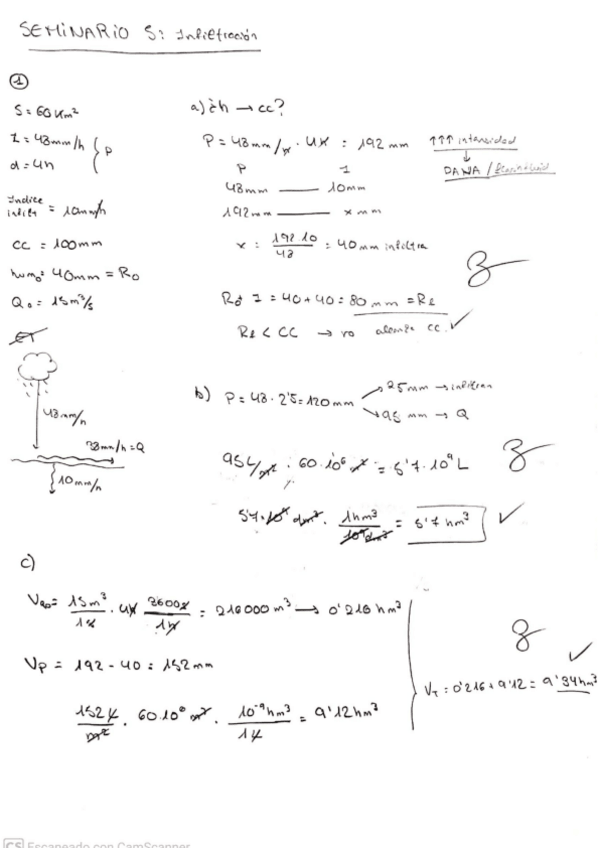 SEMINARIO 5: Infiltración
①
S = 60 Km²
I = 48mm/h
d = 4h
} P
Índice infiltr = 10mm/h
CC = 100mm
hum₀ = 40mm = R₀
Q₀ = 15m³/s
ET
48mm/h
38mm/h = Q
10mm/h
a) ¿h → cc?
P = 48mm/h · 4h = 192 mm
↑↑↑ intensidad
DANA /
P I
48mm — 10mm
192mm — x mm
x = 192·10/48 = 40mm infiltra
R₀ + I = 40 + 40 = 80 mm = R₁
R₁ < CC → no alcanza cc. ✓
b) P = 48 · 2'5 = 120mm
→ 25mm → infiltran
→ 95 mm → Q
95L/m² · 60·10⁶ m² = 5'7·10⁹ L
5'7·10⁹ dm³ · 1hm³/10⁹dm³ = 5'7 hm³ ✓
c)
V_Q₀ = 15m³/1s · 4h · 3600s/1h = 216000 m³ → 0'216 hm³
V_P = 192 - 40 = 152mm
152L/m² · 60·10⁶ m² · 10⁻⁹hm³/1L = 9'12hm³
V_T = 0'216 + 9'12 = 9'34hm³ ✓
CS Escaneado con CamScanner